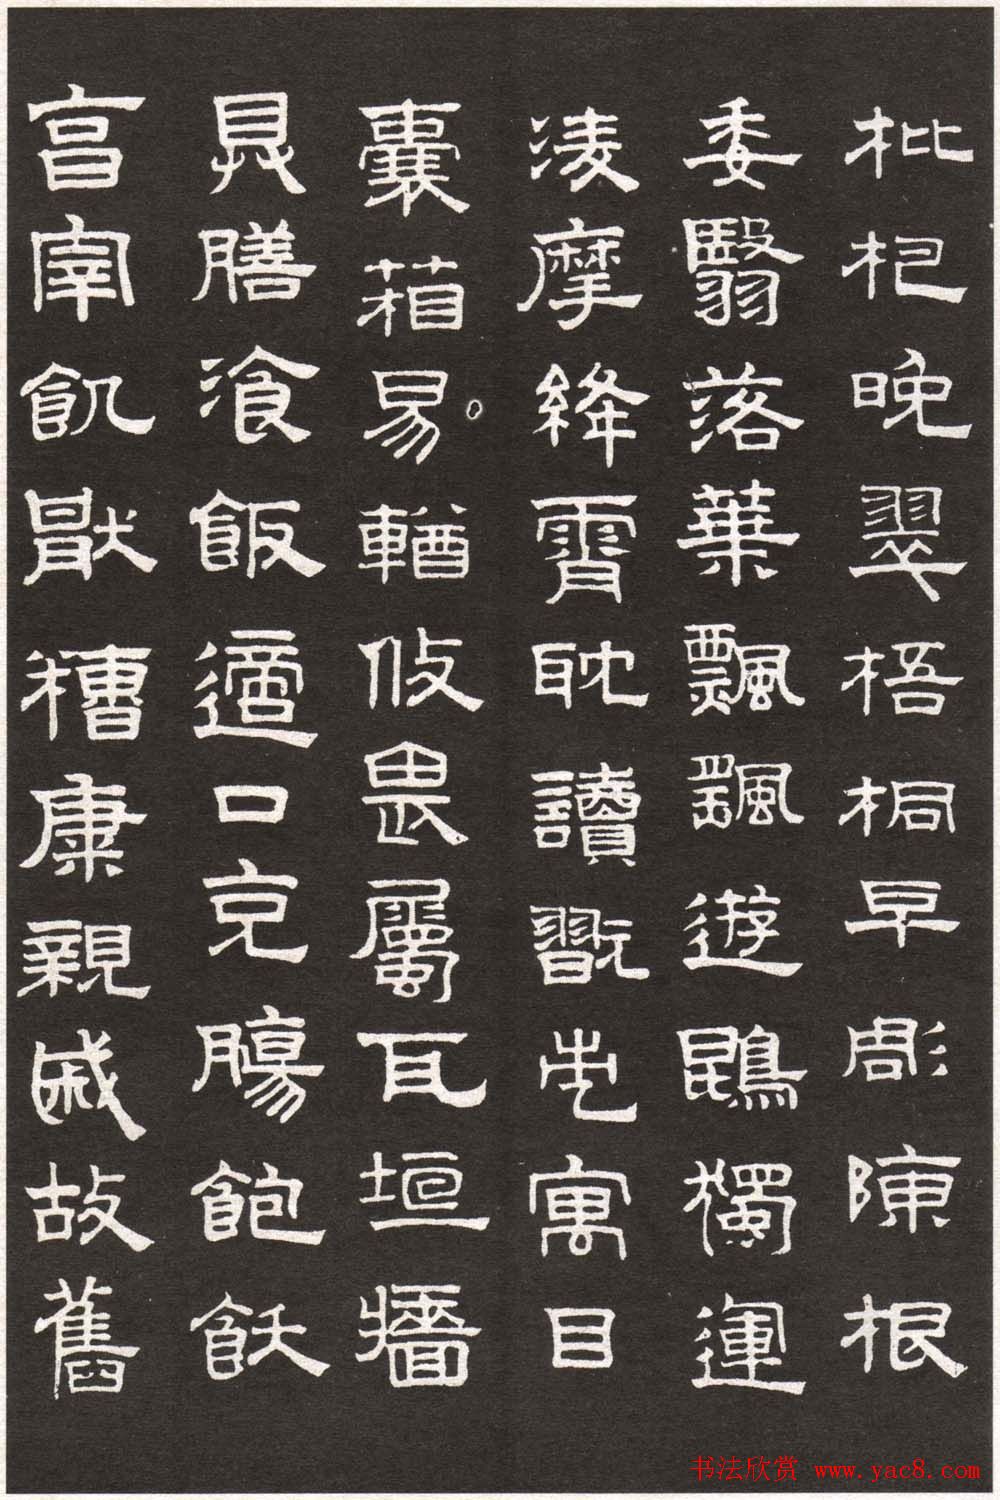 枇杷晚翠梧桐早彫陳根
委翳落葉飄颻遊鵾獨運
淩摩絳霄耽讀翫市寓目
囊箱易輶攸畏屬耳垣牆
具膳飡飯適口充腸飽飫
亯宰飢猒糟康親戚故舊
书法欣赏 www.yac8.com